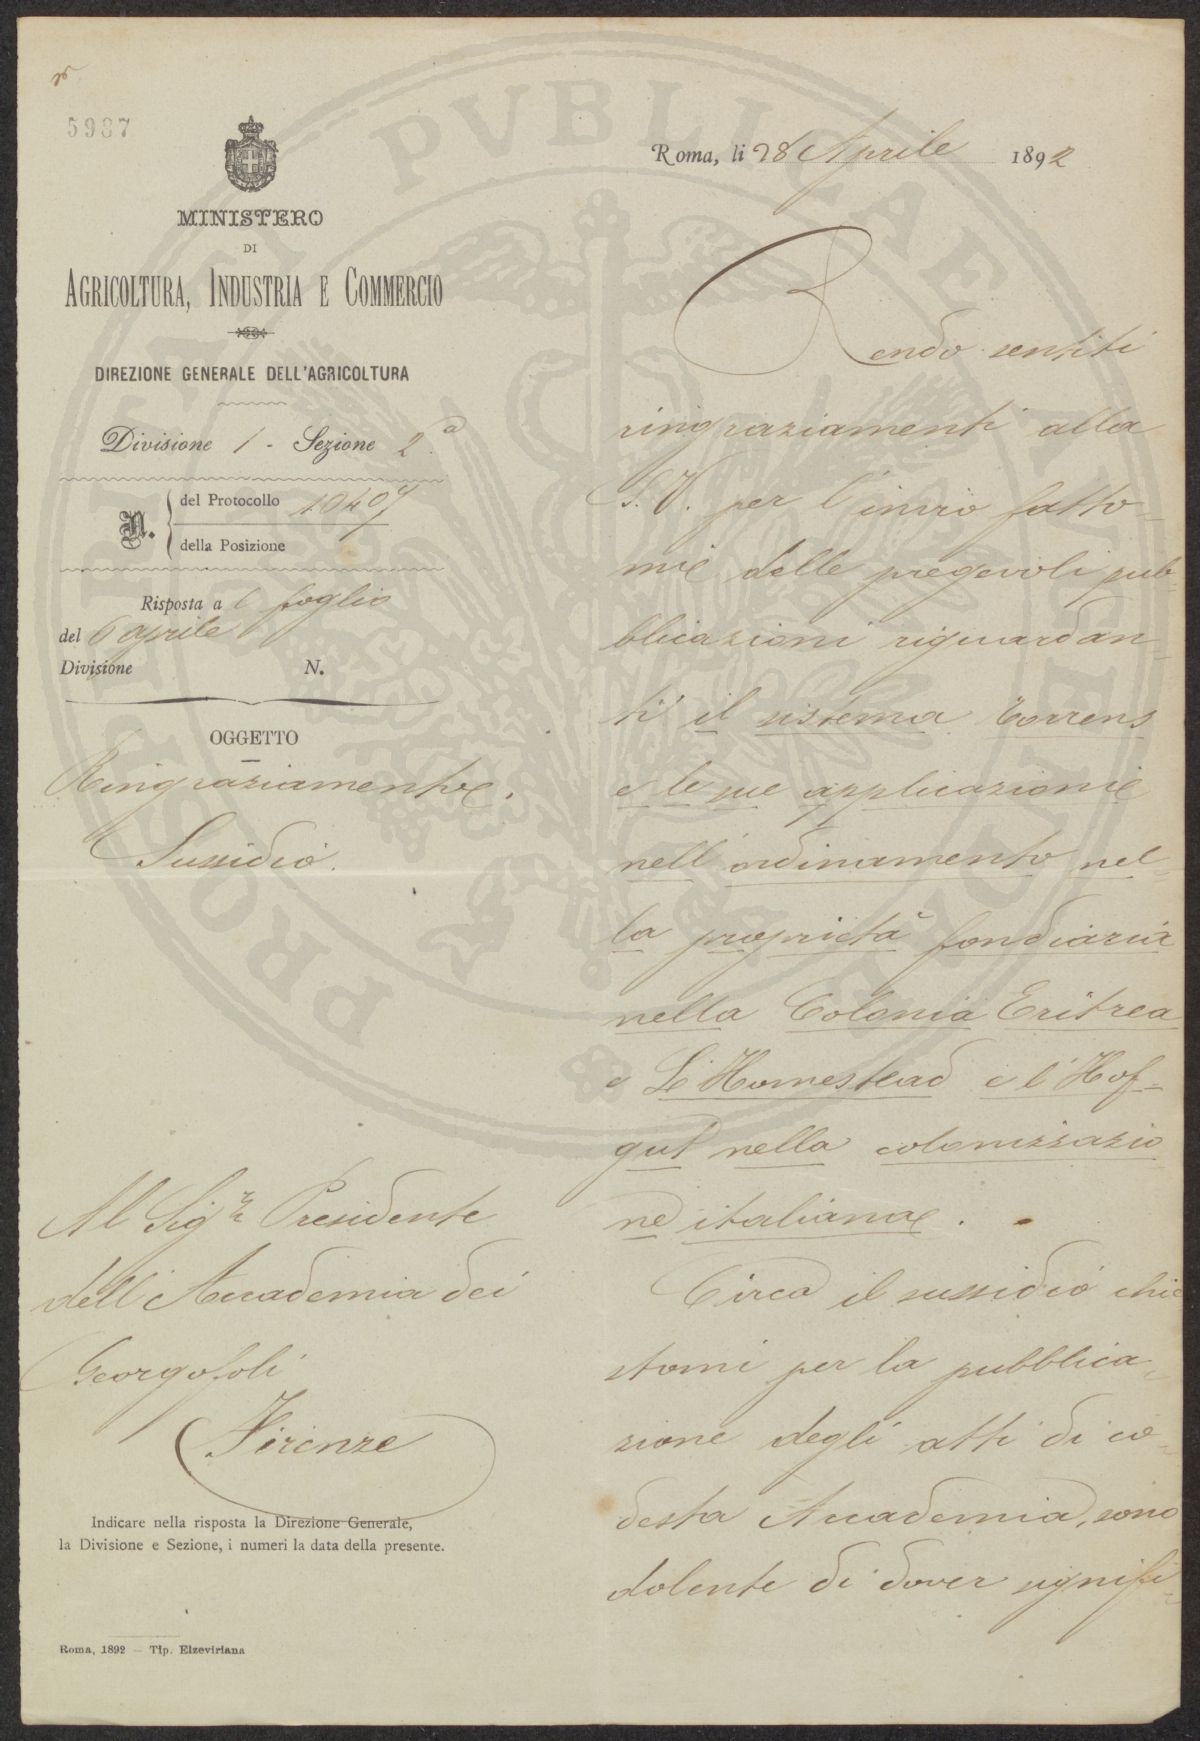 5987
MINISTERO
DI
AGRICOLTURA, INDUSTRIA E COMMERCIO
DIREZIONE GENERALE DELL'AGRICOLTURA
Divisione 1 - Sezione 2a
N. del Protocollo 10407
della Posizione
Risposta a l foglio
del 6 aprile
Divisione N.
OGGETTO
Ringraziamento.
Sussidio.
Al Sigr Presidente
dell'Accademia dei
Georgofoli
Firenze
Indicare nella risposta la Direzione Generale,
la Divisione e Sezione, i numeri la data della presente.
Roma, 1892 — Tip. Elzeviriana
Roma, li 28 Aprile 1892
Rendo sentiti
ringraziamenti alla
S. V. per l'invio fatto-
mi delle pregevoli pub-
blicazioni riguardan-
ti il sistema Torrens
e le sue applicazioni
nell'ordinamento nel-
la proprietà fondiaria
nella Colonia Eritrea
e L'Homestead e l'Hof-
gut nella colonizzazio
ne italiana.
Circa il sussidio chie
stomi per la pubblica-
zione degli atti di co-
desta Accademia, sono
dolente di dover signifi-
PROSPERITATI PVBLICAE AVGENDAE